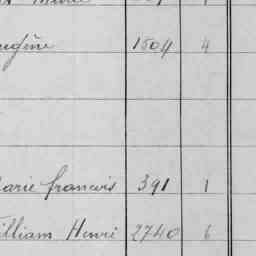 ugène 1504 4
arie francois 391 1
illiam Henri 2740 6